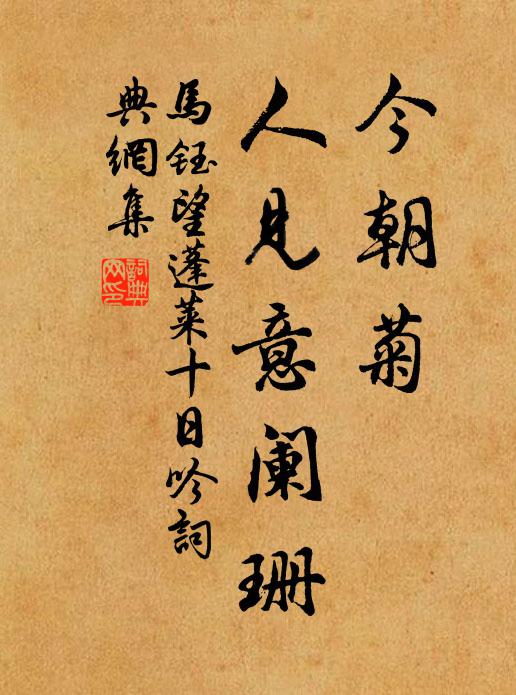 今朝菊
人見意阑珊
馬鈺望蓬萊十日吟詞
典網集
詞典
网印